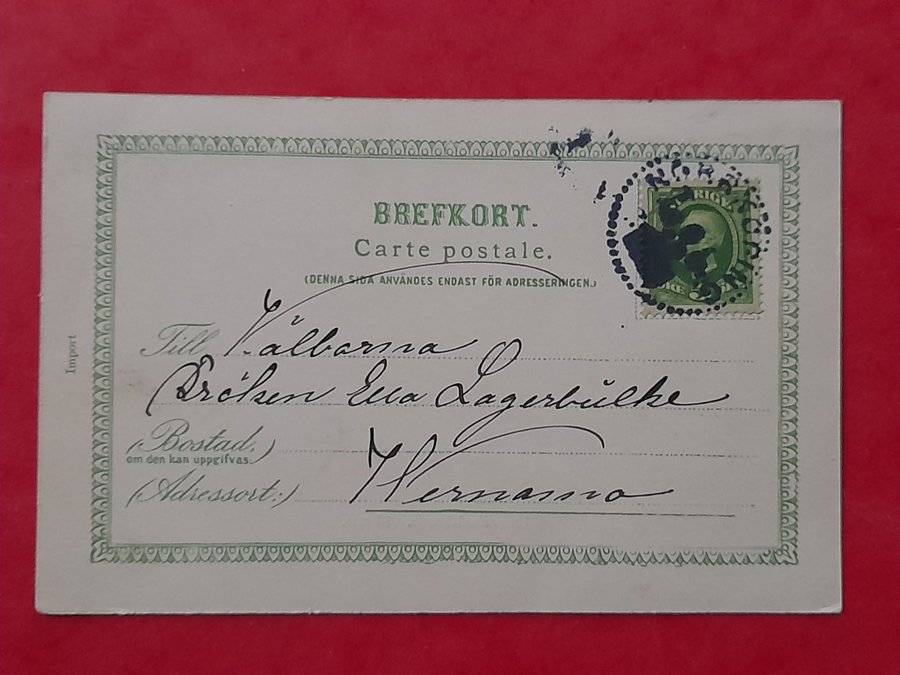 BREFKORT.
Carte postale.
(DENNA SIDA ANVÄNDES ENDAST FÖR ADRESSERINGEN.)
NORRKÖPING
SVERIGE
Import
Till Välborna
Fröken Eva Lagerbülke
(Bostad,
om den kan uppgifvas.)
(Adressort:) Wernamo